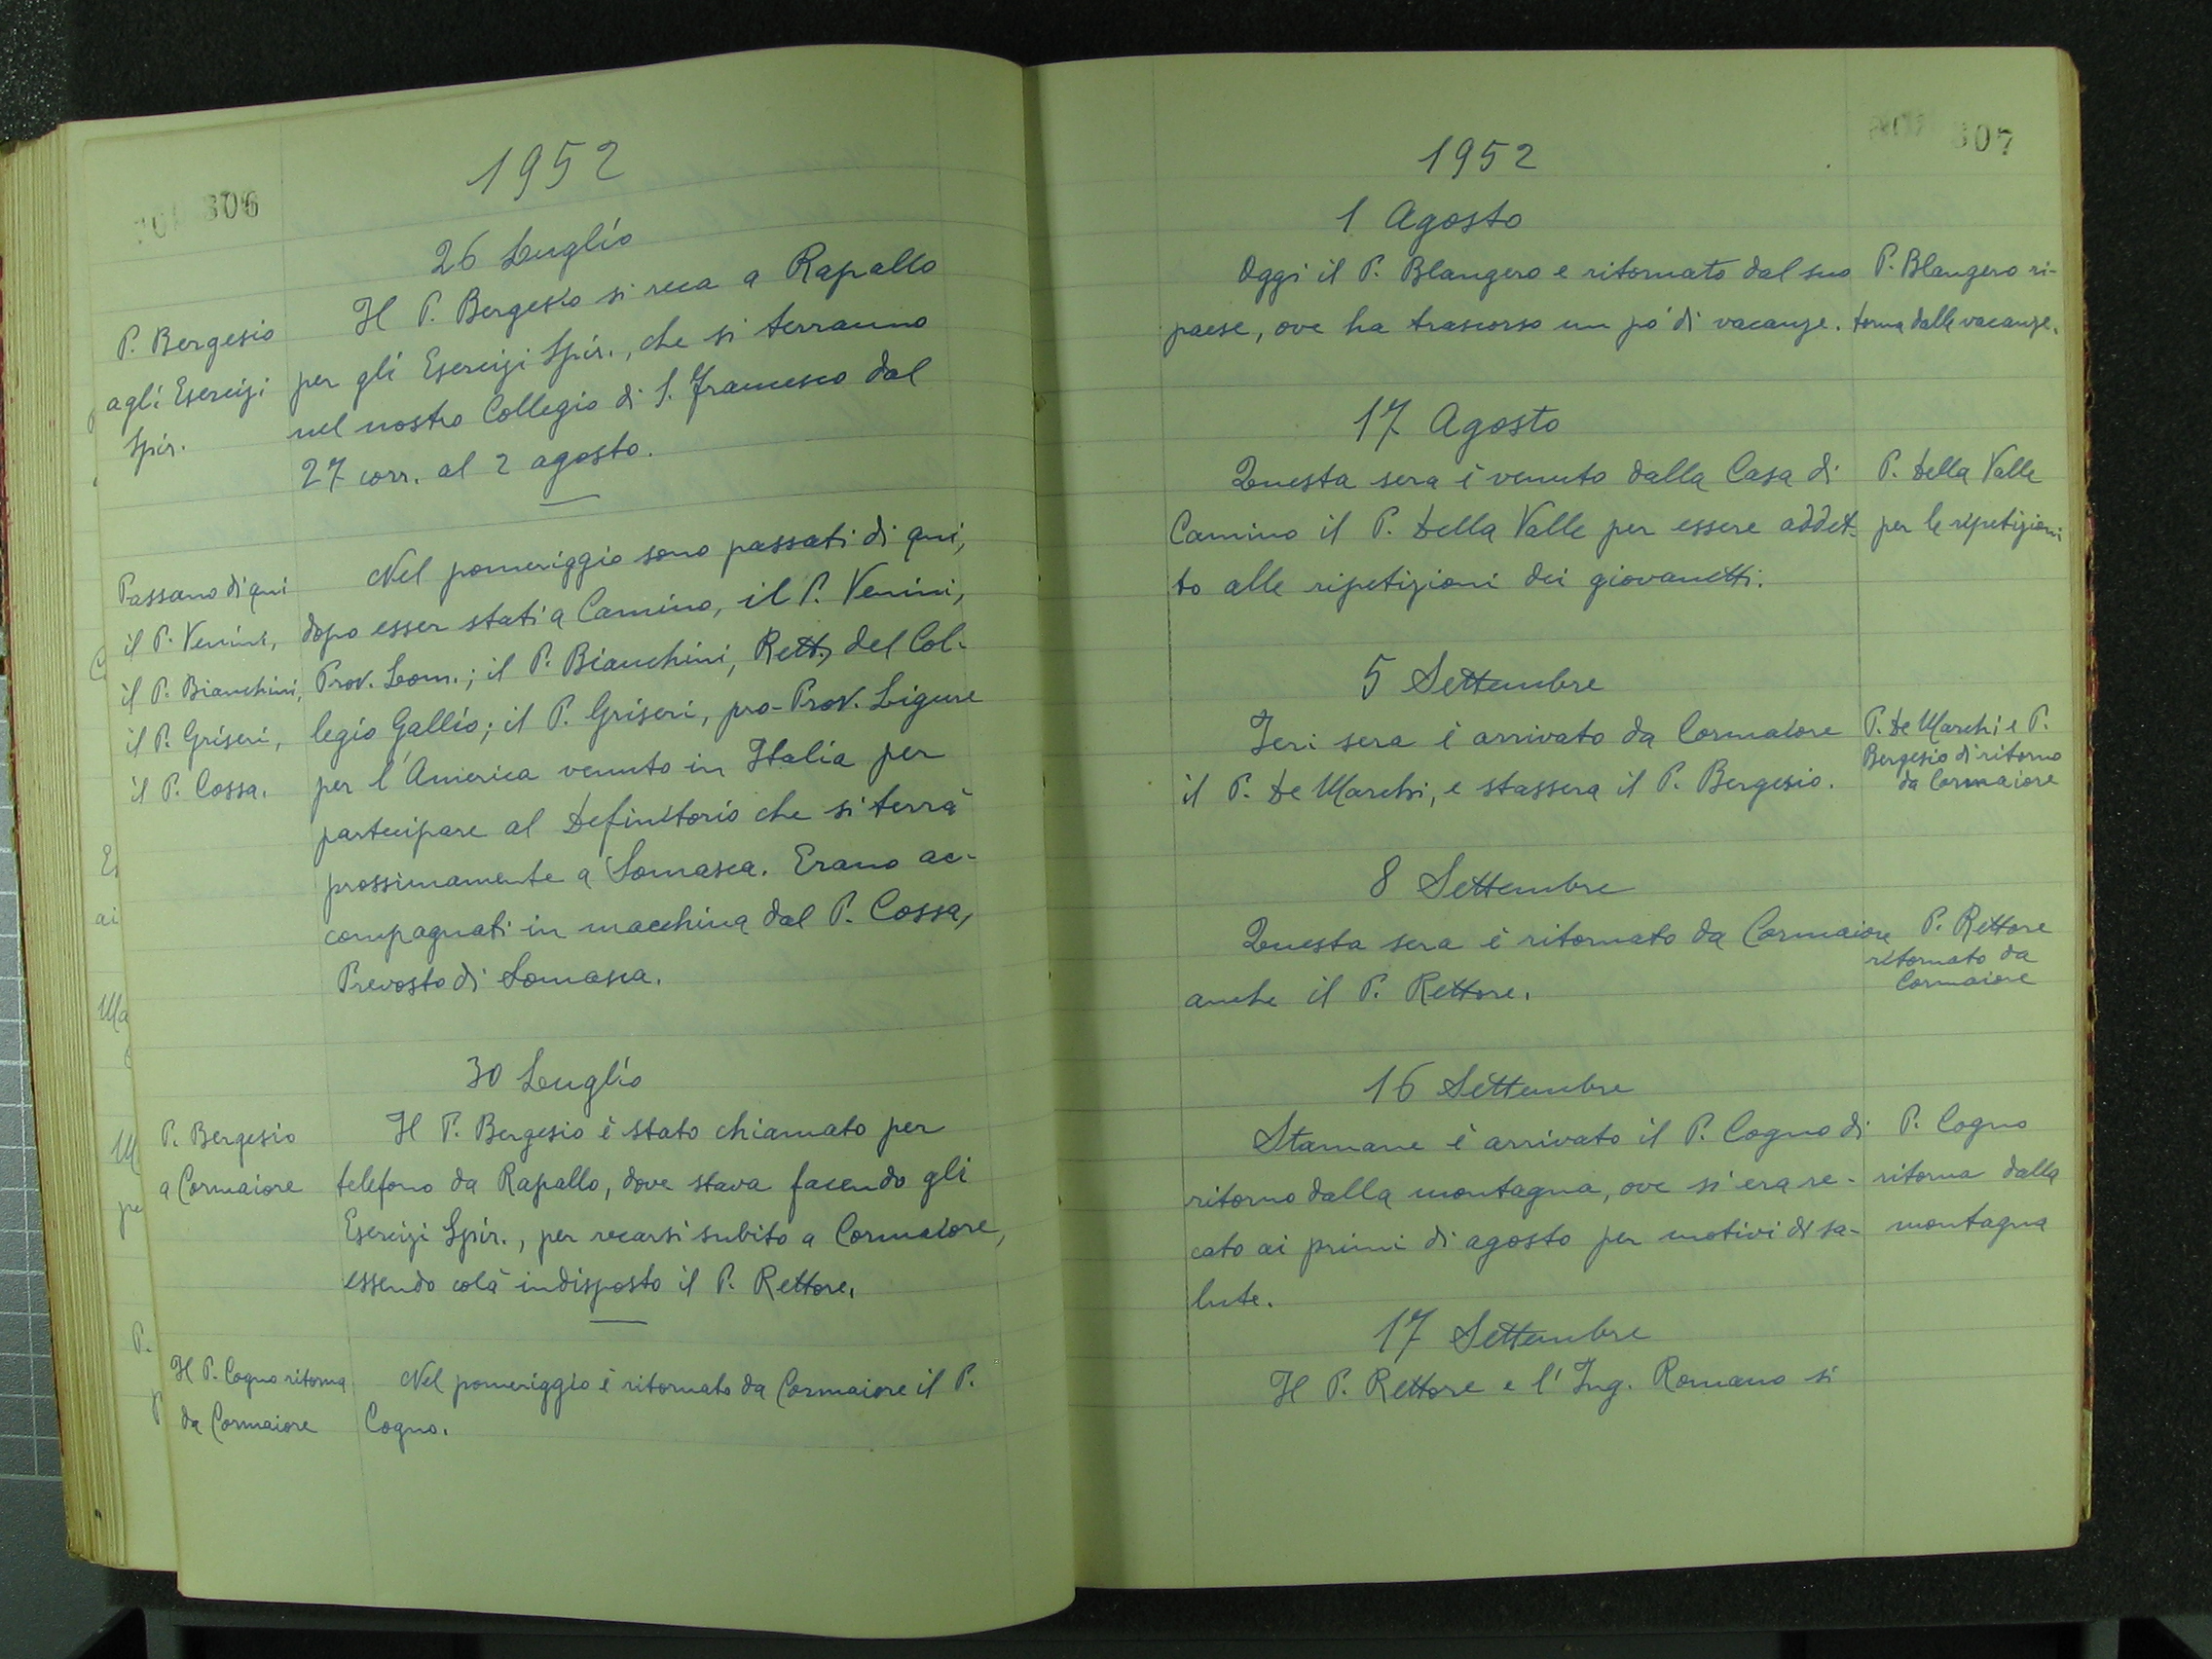 306
1952
26 Luglio
P. Bergesio
agli Esercizi
Spir.
Il P. Bergesio si reca a Rapallo
per gli Esercizi Spir., che si terranno
nel nostro Collegio di S. Francesco dal
27 corr. al 2 agosto.
Passano di qui
il P. Venini,
il P. Bianchini,
il P. Griseri,
il P. Cossa.
Nel pomeriggio sono passati di qui,
dopo esser stati a Camino, il P. Venini,
Prov. Lom.; il P. Bianchini, Rett. del Col-
legio Gallio; il P. Griseri, pro-Prov. Ligure
per l'America venuto in Italia per
partecipare al Definitorio che si terrà
prossimamente a Somasca. Erano ac-
compagnati in macchina dal P. Cossa,
Prevosto di Somasca.
30 Luglio
P. Bergesio
a Cormaiore
Il P. Bergesio è stato chiamato per
telefono da Rapallo, dove stava facendo gli
Esercizi Spir., per recarsi subito a Cormaiore,
essendo colà indisposto il P. Rettore.
Il P. Cogno ritorna
da Cormaiore
Nel pomeriggio è ritornato da Cormaiore il P.
Cogno.
307
1952
1 Agosto
Oggi il P. Blangero e ritornato dal suo
paese, ove ha trascorso un pó di vacanze.
P. Blangero ri-
torna dalle vacanze.
17 Agosto
Questa sera è venuto dalla Casa di
Camino il P. Della Valle per essere addet-
to alle ripetizioni dei giovanetti.
P. Della Valle
per le ripetizioni
5 Settembre
Ieri sera è arrivato da Cormaiore
il P. De Marchi, e stassera il P. Bergesio.
P. De Marchi e P.
Bergesio di ritorno
da Cormaiore
8 Settembre
Questa sera è ritornato da Cormaiore
anche il P. Rettore.
P. Rettore
ritornato da
Cormaiore
16 Settembre
Stamane è arrivato il P. Cogno di
ritorno dalla montagna, ove si era re-
cato ai primi di agosto per motivi di sa-
lute.
P. Cogno
ritorna dalla
montagna
17 Settembre
Il P. Rettore e l'Ing. Romano si